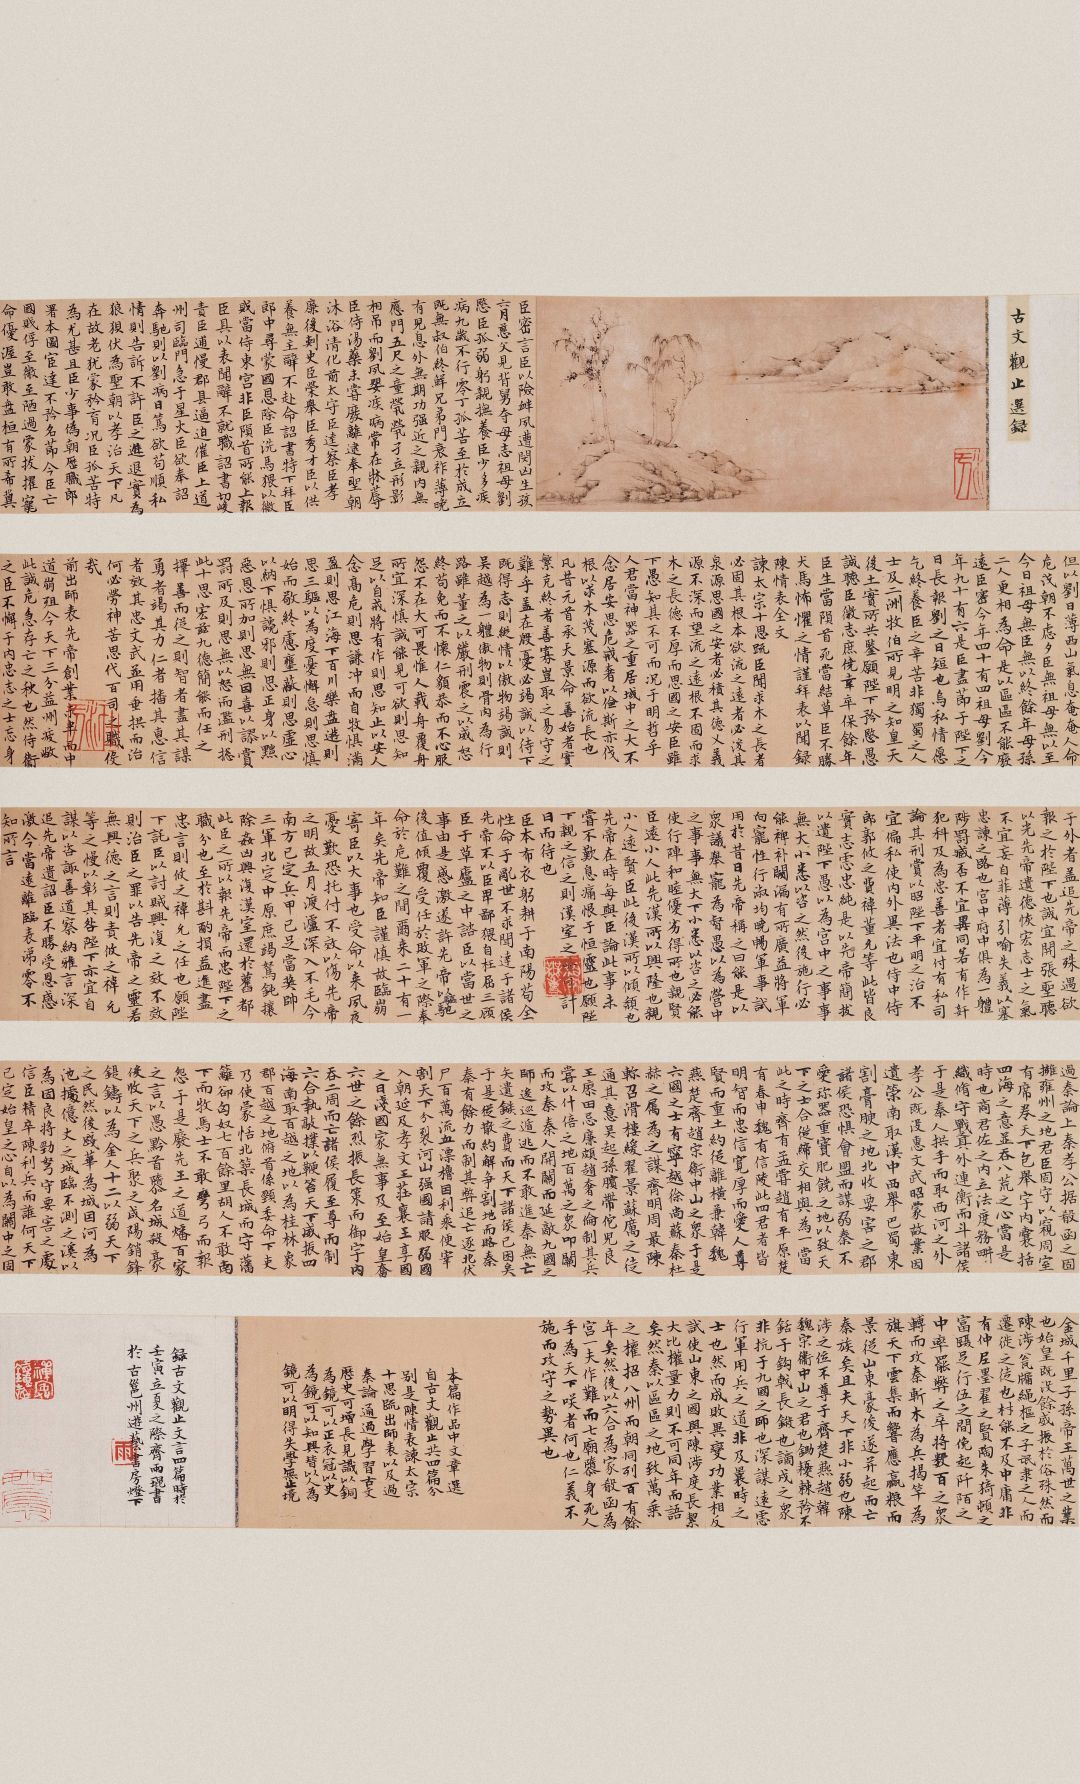 古文觀止選録
臣密言臣以險釁夙遭閔凶生孩
六月慈父見背舅奪母志祖母劉
愍臣孤弱躬親撫養臣少多疾
病九歲不行零丁孤苦至於成立
既無叔伯終鮮兄弟門衰祚薄晚
有兒息外無期功强近之親內無
應門五尺之童煢煢孑立形影
相吊而劉夙嬰疾病常在牀蓐
臣侍湯藥未嘗廢離逮奉聖朝
沐浴清化前太守臣逵察臣孝
廉後刺史臣榮舉臣秀才臣以供
養無主辭不赴命詔書特下拜臣
郎中尋蒙國恩除臣洗馬猥以微
賤當侍東宮非臣隕首所能上報
臣具以表聞辭不就職詔書切峻
責臣逋慢郡縣逼迫催臣上道
州司臨門急于星火臣欲奉詔
奔馳則以劉病日篤欲苟順私
情則告訴不許臣之進退實為
狼狽伏為聖朝以孝治天下凡
在故老猶蒙矜育況臣孤苦特
為尤甚且臣少事偽朝歷職郎
署本圖宦達不矜名節今臣亡
國賤俘至微至陋過蒙拔擢寵
命優渥豈敢盤桓有所希冀
但以劉日薄西山氣息奄奄人命
危淺朝不慮夕臣無祖母無以至
今日祖母無臣無以終餘年母孫
二人更相為命是以區區不能廢
遠臣密今年四十有四祖母劉今
年九十有六是臣盡節于陛下之
日長報劉之日短也烏私情愿
乞終養臣之辛苦非獨蜀之人
士及二洲牧伯所見明之知皇天
後土實所共鑒願陛下矜愍愚
誠聽臣微志庶僥幸卒保餘年
臣生當隕首死當結草臣不勝
犬馬怖懼之情謹拜表以聞録
陳情表全文
諫太宗十思疏臣聞求木之長者
必固其根本欲流之遠者必浚其
泉源思國之安者必積其德義
源不深而望流之遠根不固而求
木之長德不厚而思國之安臣雖
下愚知其不可而況于明哲乎
人君當神器之重居域中之大不
念居安思危戒奢以儉斯亦伐
根以求木茂塞源而欲流長也
凡昔元首承天景命善始者實
繁克終者善寡豈取之易守之
難乎盖在殷憂必竭誠以待下
既得志則縱情以傲物竭誠則
吳越為一體傲物則骨肉為行
路雖董之以嚴刑震之以威怒
終苟免而不懷仁貌恭而不心服
怨不在大可畏惟人載舟覆舟
所宜深慎誠能見可欲則思知
足以自戒將有作則思知止以安人
念高危則思謙冲而自牧懼滿
盈則思江海下百川樂盤遊則
思三驅以為度憂懈怠則思慎
始而敬終慮壅蔽則思虛心
以納下懼讒邪則思正身以黜
惡恩所加則思無因喜以謬賞
罰所及則思無以怒而濫刑總
此十思宏兹九德簡能而任之
擇善而從之則智者盡其謀
勇者竭其力仁者播其惠信
者效其忠文武並用垂拱而治
何必勞神苦思代百司之職役
哉
前出師表先帝創業未半而中
道崩殂今天下三分益州疲敝
此誠危急存亡之秋也然侍衞
之臣不懈于內忠志之士忘身
于外者盖追先帝之殊遇欲
報之於陛下也誠宜開張聖聽
以光先帝遺德恢宏志士之氣
不宜妄自菲薄引喻失義以塞
忠諫之路也宮中府中俱為一體
陟罰臧否不宜異同若有作奸
犯科及為忠善者宜付有私司
論其刑賞以昭陛下平明之治不
宜偏私使內外異法也侍中侍
郎郭攸之費禕董允等此皆良
實志慮忠純是以先帝簡拔
以遺陛下愚以為宮中之事事
無大小悉以咨之然後施行必
能裨補闕漏有所廣益將軍
向寵性行淑均曉暢軍事試
用於昔日先帝稱之曰能是以
衆議舉寵為督愚以為營中
之事事無大下小悉以咨之必能
使行陣和睦優劣得所也親賢
臣遠小人此先漢所以興隆也親
小人遠賢臣此後漢所以傾頹也
先帝在時每與臣論此事未
嘗不歎息痛恨于恒靈也願陛
下親之信之則漢室之可計
日而待也
臣本布衣躬耕于南陽苟全
性命于亂世不求聞達于諸侯
先帝不以臣卑鄙猥自枉屈三顧
臣于草廬之中諮臣以當世之
事由是感激遂許先帝以驅馳
後值傾覆受任於敗軍之際奉
命於危難之間爾来二十有一
年矣先帝知臣謹慎故臨崩
寄臣以大事也受命以来夙夜
憂歎恐托付不效以傷先帝
之明故五月渡瀘深入不毛今
南方已定兵甲已足當獎帥
三軍北定中原庶竭駑鈍攘
除姦凶興復漢室還於舊都
此臣之所以報先帝而忠陛下之
職分也至於斟酌損益進盡
忠言則攸之禕允之任也願陛
下託臣以討賊興復之效不效
則治臣之罪以告先帝之靈若
無興德之言則責攸之禕允
等之慢以彰其咎陛下亦宜自
謀以咨諏善道察納雅言深
追先帝遺詔臣不勝受恩感
激今當遠離臨表涕零不
知所言
過秦論上秦孝公据殽函之固
擁雍州之地君臣固守以窺周室
有席卷天下包舉宇內囊括
四海之意並吞八荒之心當是
時也商君佐之內立法度務耕
織脩守戰具外連衡而斗諸侯
于是秦人拱手而取西河之外
孝公既没惠文武昭蒙故業因
遺策南取漢中西舉巴蜀東
割膏腴之地北收要害之郡
諸侯恐惧會盟而謀弱秦不
愛珍器重寶肥饒之地以致天
下之士合從締交相與為一當
此之時齊有孟嘗趙有平原楚
有春申魏有信陵此四君者皆
明智而忠信寬厚而愛人尊
賢而重士約從離橫兼韓魏
燕楚齊趙宋衛中山之衆于是
六國之士有寧越徐尚蘇秦杜
赫之屬為之謀齊明周最陳
軫召滑樓緩翟景蘇厲之徒
通其意吳起孫臏帶佗兒良
王廖田忌廉頗趙奢之倫制其兵
嘗以什倍之地百萬之衆叩關
而攻秦秦人開關而延敵九國之
師逡巡遁逃而不敢進秦無亡
矢遺鏃之費而天下諸侯已困矣
于是從散約解爭割地而賂秦
秦有餘力而制其弊追亡逐北伏
尸百萬流血漂櫓因利乘便宰
割天下分裂河山强國請服弱國
入朝延及孝文王莊襄王享國
之日淺國家無事及至始皇奮
六世之餘烈振長策而御宇內
吞二周而亡諸侯履至尊而制
六合執敲撲以鞭笞天下威振四
海南取百越之地以為桂林象
郡百越之地俯首係頸委命下吏
乃使蒙恬北築長城而守藩
籬卻匈奴七百餘里胡人不敢南
下而牧馬士不敢彎弓而報
怨于是廢先王之道燔百家
之言以愚黔首隳名城殺豪
俊收天下之兵聚之咸陽銷鋒
鍉鑄以為金人十二以弱天下
之民然後踐華為城因河為
池據億丈之城臨不測之溪以
為固良將勁弩守要害之處
信臣精卒陳利兵而誰何天下
已定始皇之心自以為關中之固
金城千里子孫帝王萬世之業
也始皇既没餘威振於俗殊然而
陳涉瓮牖繩樞之子氓隸之人而
遷徙之徒也材能不及中庸非
有仲尼墨翟之賢陶朱猗頓之
富躡足行伍之間俛起阡陌之
中率罷弊之卒將數百之衆
轉而攻秦斬木為兵揭竿為
旗天下雲集而響應贏糧而
景從山東豪俊遂并起而亡
秦族矣且夫天下非小弱也陳
涉之位不尊于齊楚燕趙韓
魏宋衛中山之君也鋤耰棘矜不
銛于鈎戟長鎩也謫戍之衆
非抗于九國之師也深謀遠慮
行軍用兵之道非及曩時之
士也然而成敗異變功業相反
試使山東之國與陳涉度長絜
大比權量力則不可同年而語
矣然秦以區區之地致萬乘
之權招八州而朝同列百有餘
年矣然後以六合為家殽函為
宮一夫作難而七廟隳身死人
手為天下咲者何也仁義不
施而攻守之勢異也
本篇作品中文章選
自古文觀止共四篇分
別是陳情表諫太宗
十思疏出師表以及過
秦論通過學習古文
歷史可增長見識以銅
為鏡可以正衣冠以史
為鏡可以知興替以人為
鏡可以明得失學無止境
録古文觀止文言四篇時於
壬寅立夏之際齊雨琨書
於古邕州遊藝書房燈下